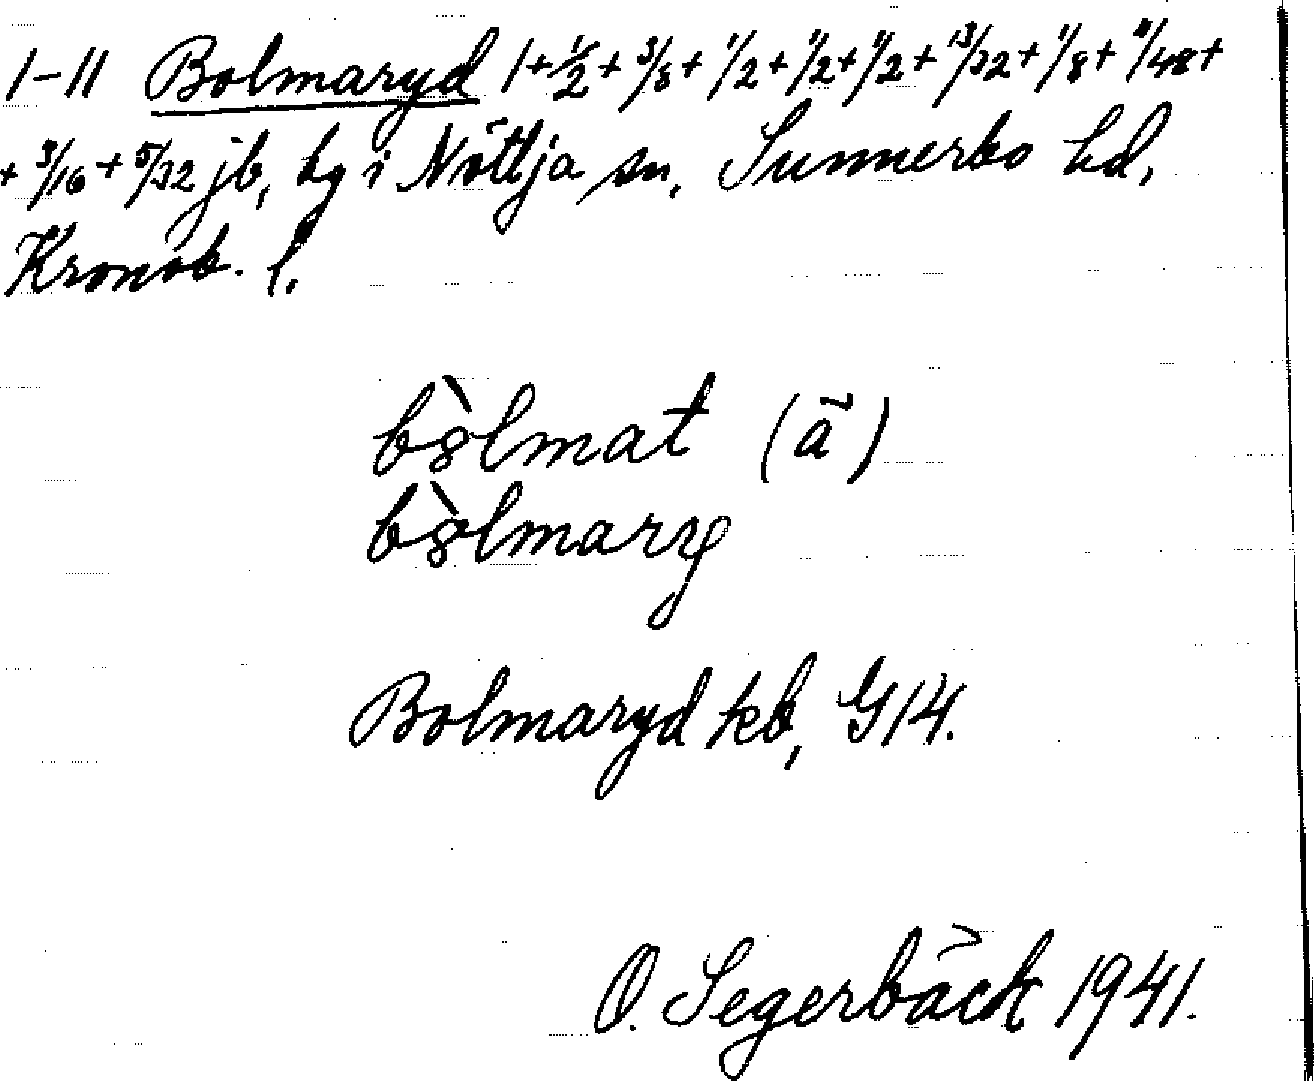 1-11 Bolmaryd 1+1/2+3/8+1/2+1/2+1/2+13/32+1/8+11/48+
+3/16+5/32 jb, by i Nöttja sn, Sunnerbo hd,
Kronob. l.
bòlmat (ā)
bòlmary
Bolmaryd kb, G14.
O. Segerbäck 1941.